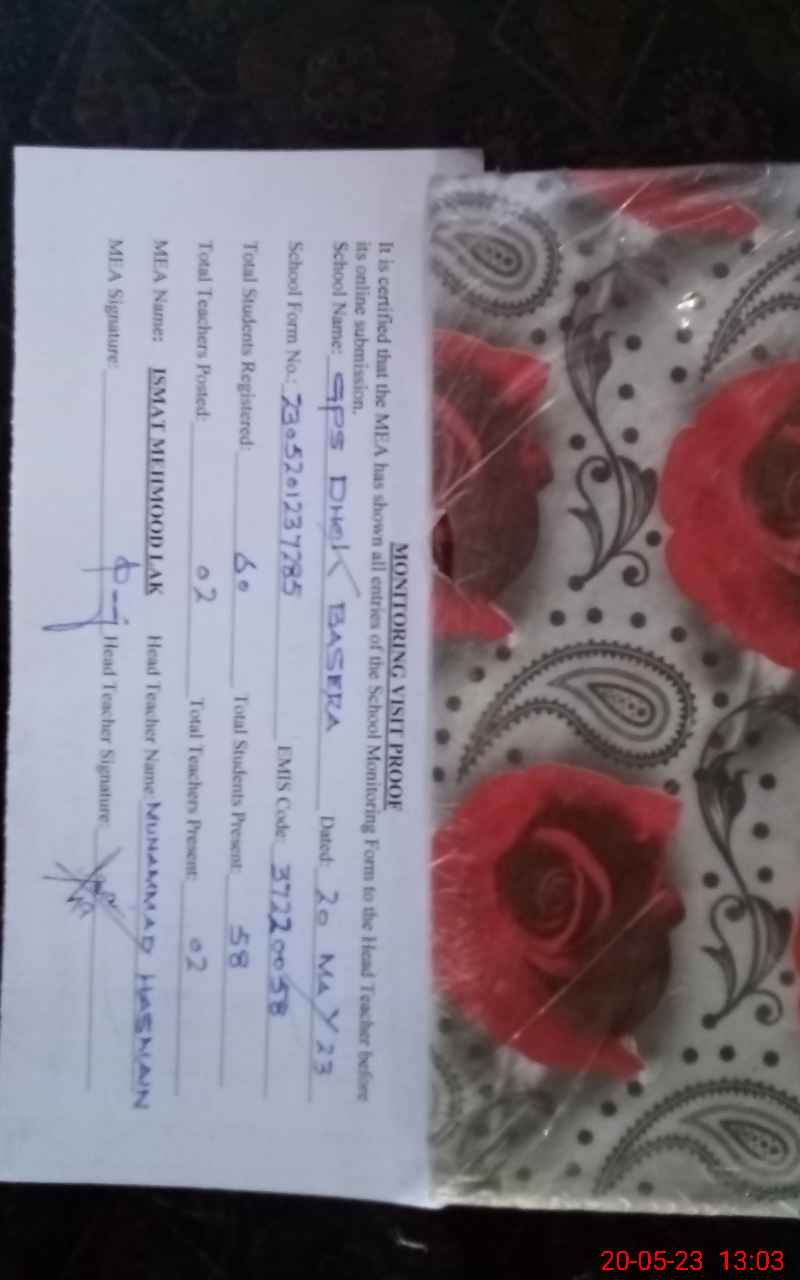 MONITORING VISIT PROOF
It is certified that the MEA has shown all entries of the School Monitoring Form to the Head Teacher before
its online submission.
School Name: GPS DHOK BASERA Dated: 20 May 23
School Form No.: 7305201237285 EMIS Code: 37220058
Total Students Registered: 60 Total Students Present: 58
Total Teachers Posted: 02 Total Teachers Present: 02
MEA Name: ISMAT MEHMOOD LAK Head Teacher Name MUHAMMAD HASNAIN
MEA Signature: Head Teacher Signature:
20-05-23 13:03